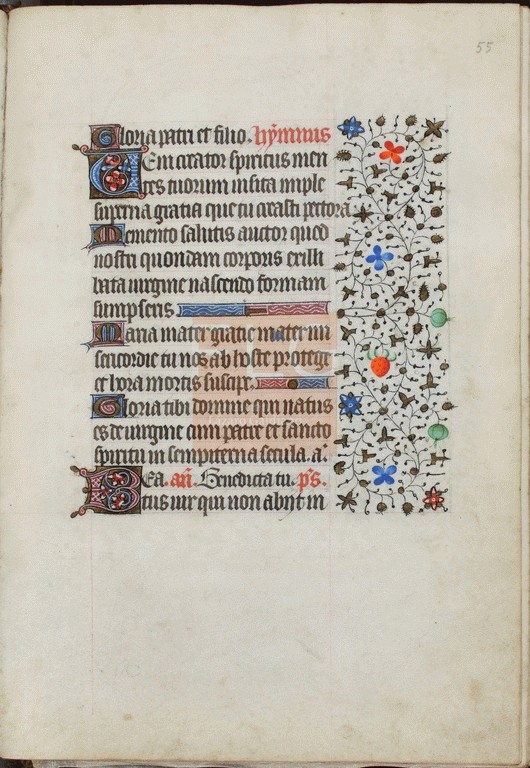 55
Gloria patri et filio. hȳmnus
Veni creator spiritus men
tes tuorum visita imple
superna gratia que tu creasti pectora
Memento salutis auctor quod
nostri quondam corporis ex illi
bata virgine nascendo formam
sumpseris
Maria mater gratie mater mi
sericordie tu nos ab hoste protege
et hora mortis suscipe.
Gloria tibi domine qui natus
es de virgine cum patre et sancto
spiritu in sempiterna secula. a.
Bea. añ. Benedicta tu. p̄s.
tus vir qui non abiit in